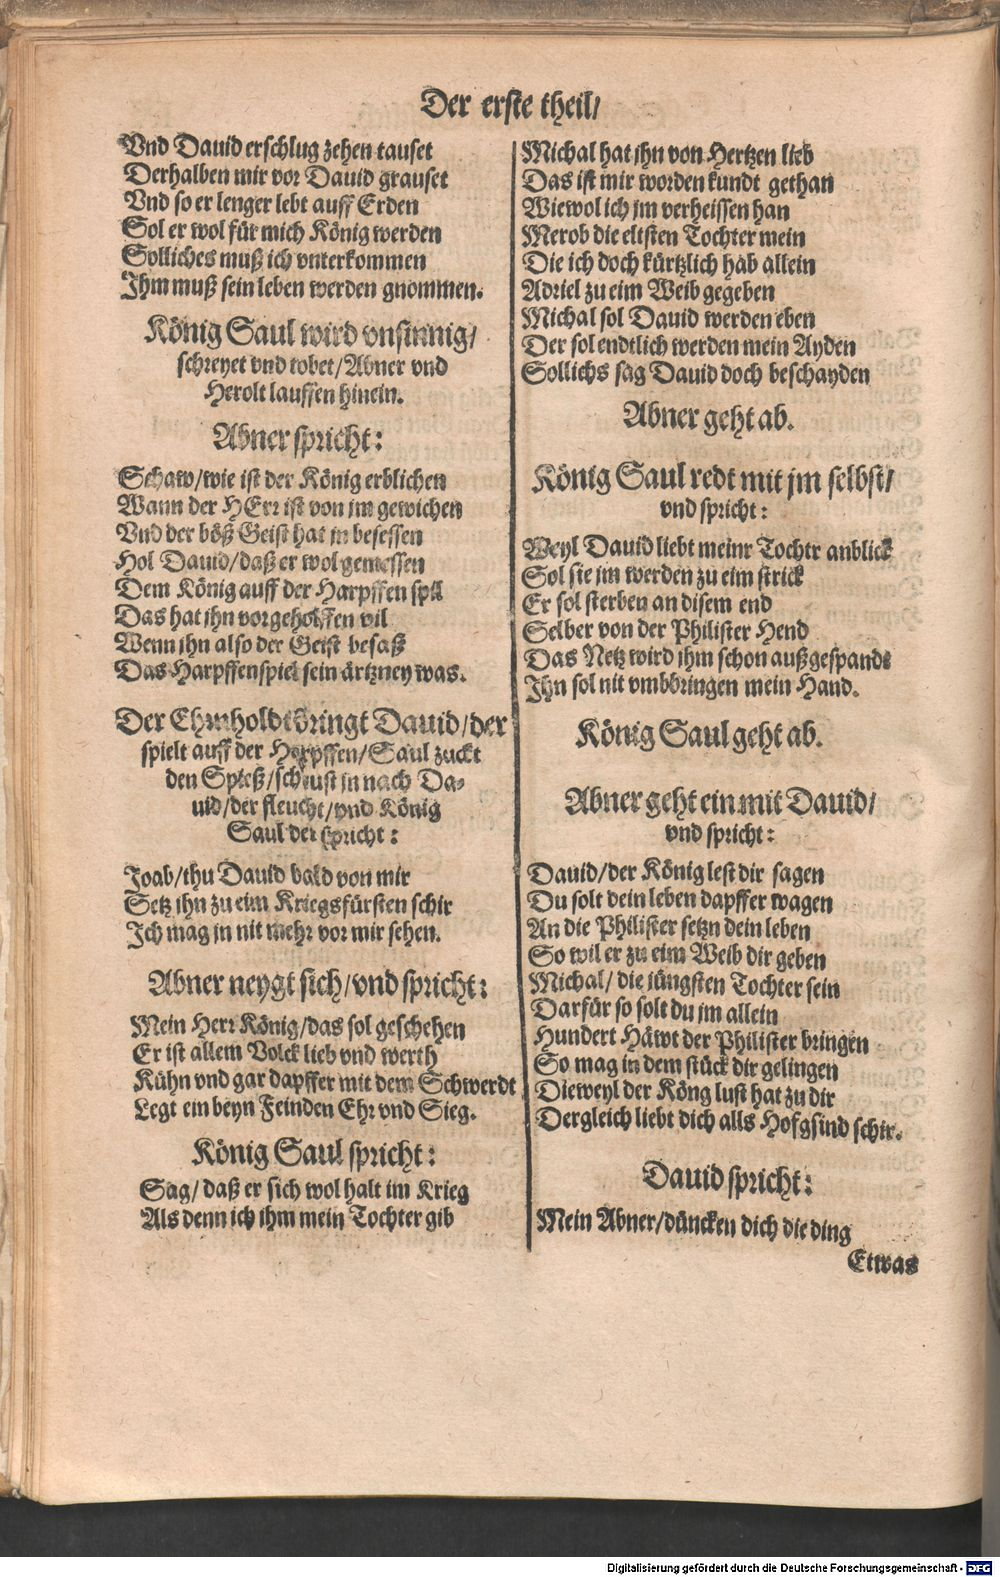 Der erste theil/
Vnd Dauid erschlug zehen tauset
Derhalben mir vor Dauid grauset
Vnd so er lenger lebt auff Erden
Sol er wol für mich König werden
Solliches muß ich vnterkommen
Ihm muß sein leben werden gnommen.
König Saul wird vnsinnig/
schreyet vnd tobet/Abner vnd
Herolt lauffen hinein.
Abner spricht:
Schaw/wie ist der König erblichen
Wann der HErr ist von jm gewichen
Vnd der böß Geist hat jn besessen
Hol Dauid/daß er wol gemessen
Dem König auff der Harpffen spil
Das hat ihn vor geholffen vil
Wenn ihn also der Geist besaß
Das Harpffenspiel sein ärtzney was.
Der Ehrnholdt bringt Dauid/der
spielt auff der Harpffen/Saul zuckt
den Spieß/scheust jn nach Da-
uid/der fleucht/vnd König
Saul der spricht:
Joab/thu Dauid bald von mir
Setz ihn zu eim Kriegsfürsten schir
Ich mag jn nit mehr vor mir sehen.
Abner neygt sich/vnd spricht:
Mein Herr König/das sol geschehen
Er ist allem Volck lieb vnd werth
Kühn vnd gar dapffer mit dem Schwerdt
Legt ein beyn Feinden Ehr vnd Sieg.
König Saul spricht:
Sag/daß er sich wol halt im Krieg
Als denn ich ihm mein Tochter gib
Michal hat ihn von Hertzen lieb
Das ist mir worden kundt gethan
Wiewol ich jm verheissen han
Merob die eltsten Tochter mein
Die ich doch kürtzlich hab allein
Adriel zu eim Weib gegeben
Michal sol Dauid werden eben
Der sol endtlich werden mein Ayden
Sollichs sag Dauid doch beschayden
Abner geht ab.
König Saul redt mit jm selbst/
vnd spricht:
Weyl Dauid liebt meinr Tochtr anblick
Sol sie jm werden zu eim strick
Er sol sterben an disem end
Selber von der Philister Hend
Das Netz wird ihm schon außgespandt
Ihn sol nit vmbbringen mein Hand.
König Saul geht ab.
Abner geht ein mit Dauid/
vnd spricht:
Dauid/der König lest dir sagen
Du solt dein leben dapffer wagen
An die Philister setzn dein leben
So wil er zu eim Weib dir geben
Michal/die jüngsten Tochter sein
Darfür so solt du jm allein
Hundert Häwt der Philister bringen
So mag in dem stück dir gelingen
Dieweyl der Köng lust hat zu dir
Dergleich liebt dich alls Hofgsind schir.
Dauid spricht:
Mein Abner/düncken dich die ding
Etwas
Digitalisierung gefördert durch die Deutsche Forschungsgemeinschaft - DFG